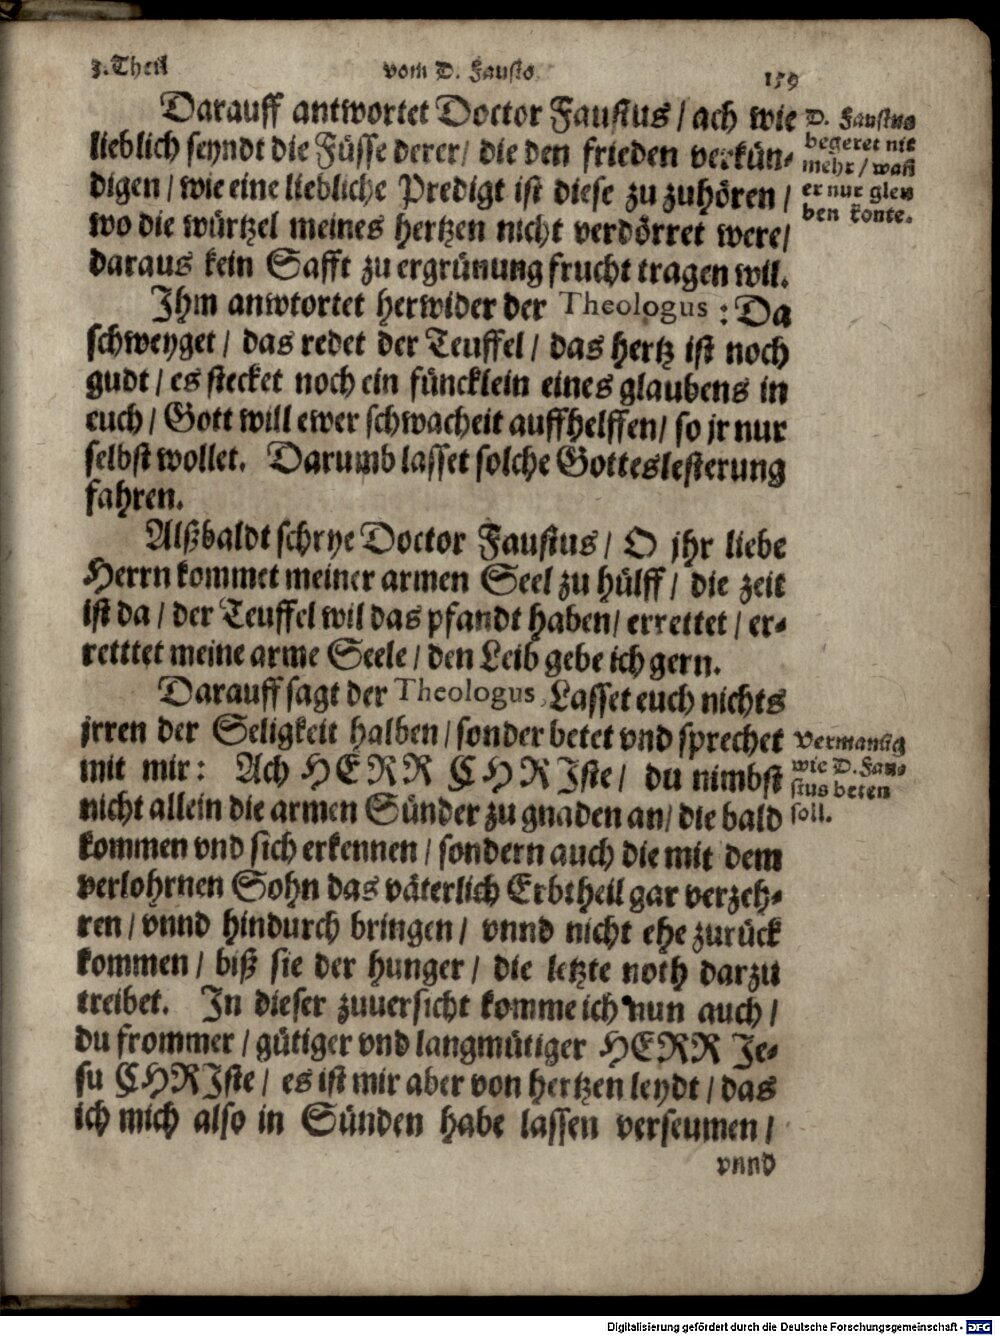 3. Theil vom D. Fausto. 159
Darauff antwortet Doctor Faustus / ach wie
lieblich seyndt die Füsse derer / die den frieden verkün-
digen / wie eine liebliche Predigt ist diese zu zuhören /
wo die würtzel meines hertzen nicht verdörret were /
daraus kein Safft zu ergrünung frucht tragen wil.
D. Faustus
begeret nit
mehr / wañ
er nur gleu
ben konte.
Ihm anwtortet herwider der Theologus : Da
schweyget / das redet der Teuffel / das hertz ist noch
gudt / es stecket noch ein füncklein eines glaubens in
euch / Gott will ewer schwacheit auffhelffen / so jr nur
selbst wollet. Darumb lasset solche Gotteslesterung
fahren.
Alßbaldt schrye Doctor Faustus / O jhr liebe
Herrn kommet meiner armen Seel zu hülff / die zeit
ist da / der Teuffel wil das pfandt haben / errettet / er-
retttet meine arme Seele / den Leib gebe ich gern.
Darauff sagt der Theologus, Lasset euch nichts
jrren der Seligkeit halben / sonder betet vnd sprechet
mit mir: Ach HERR CHRIste / du nimbst
nicht allein die armen Sünder zu gnaden an / die bald
kommen vnd sich erkennen / sondern auch die mit dem
verlohrnen Sohn das väterlich Erbtheil gar verzeh-
ren / vnnd hindurch bringen / vnnd nicht ehe zurück
kommen / biß sie der hunger / die letzte noth darzu
treibet. In dieser zuuersicht komme ich nun auch /
du frommer / gütiger vnd langmütiger HERR Je-
su CHRIste / es ist mir aber von hertzen leydt / das
ich mich also in Sünden habe lassen verseumen /
vnnd
wie D. Fau-
stus beten
soll.
Digitalisierung gefördert durch die Deutsche Forschungsgemeinschaft - DFG